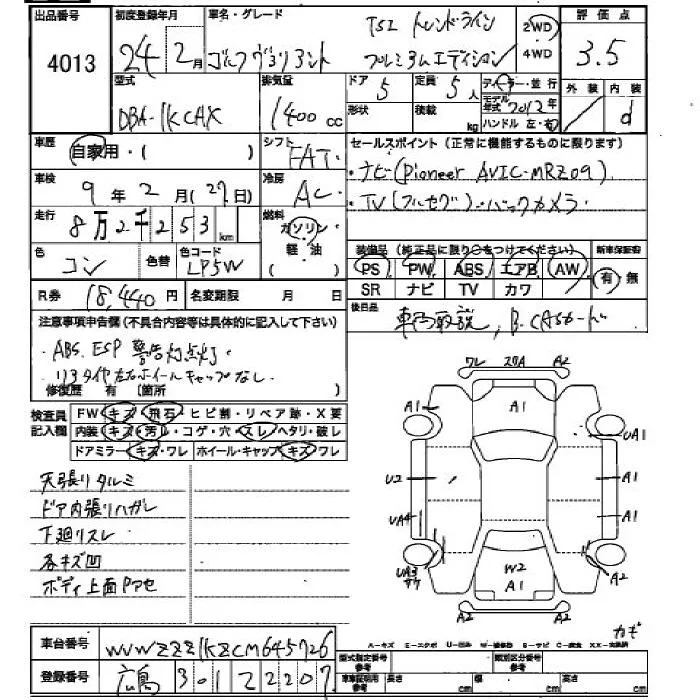 出品番号 初度登録年月 車名・グレード 評価点
4013 24年2月 ゴルフ ヴァリアント TSI トレンドライン プレミアムエディション 2WD 4WD 3.5
型式 排気量 ドア 定員 ディーラー・並行 外装 内装
DBA-1KCAX 1400cc 5 5人 モデル年式 2012年 d
形状 積載 kg ハンドル 左・右
車歴 自家用・( ) シフト FAT セールスポイント(正常に機能するものに限ります)
車検 9年2月(27日) 冷房 AC ・ナビ(Pioneer AVIC-MRZ09)
走行 8万2千253km 燃料 ガソリン・軽・油 ( ) ・TV(フルセグ)・バックカメラ
色 コン 色替 色コード LP5W 装備品(純正品に限り○をつけてください) 新車保証書
PS PW ABS エアB AW 有・無
SR ナビ TV カワ
R券 18,440円 名変期限 月 日 後日品
車両取説, B-CASカード
注意事項申告欄(不具合内容等は具体的に記入して下さい)
・ABS. ESP 警告灯点灯
・リヌタイヤ左右ホイールキャップなし.
修復歴 有(箇所 )
検査員記入欄 FW キズ・飛石・ヒビ割・リペア跡・X要
内装・キズ・汚レ・コゲ・穴・スレ・ヘタリ・破レ
ドアミラー・キズ・ワレ ホイール・キャップ・キズ・ワレ
天張りタルミ
ドア内張りハガレ
下廻リスレ
各キズ凹
ボディ上面アセ
ワレ スリA A2
A1 A1 UA1
U2 A1
UA4 A1
UA3 W2 A1 A2
A2 A2
カギ
A-キズ E-エクボ
車台番号 WVWZZZ1KZCM645726 型式指定番号 類別区分番号
登録番号 広島 301 ア 2207 参考 長さ cm 幅 cm 高さ cm